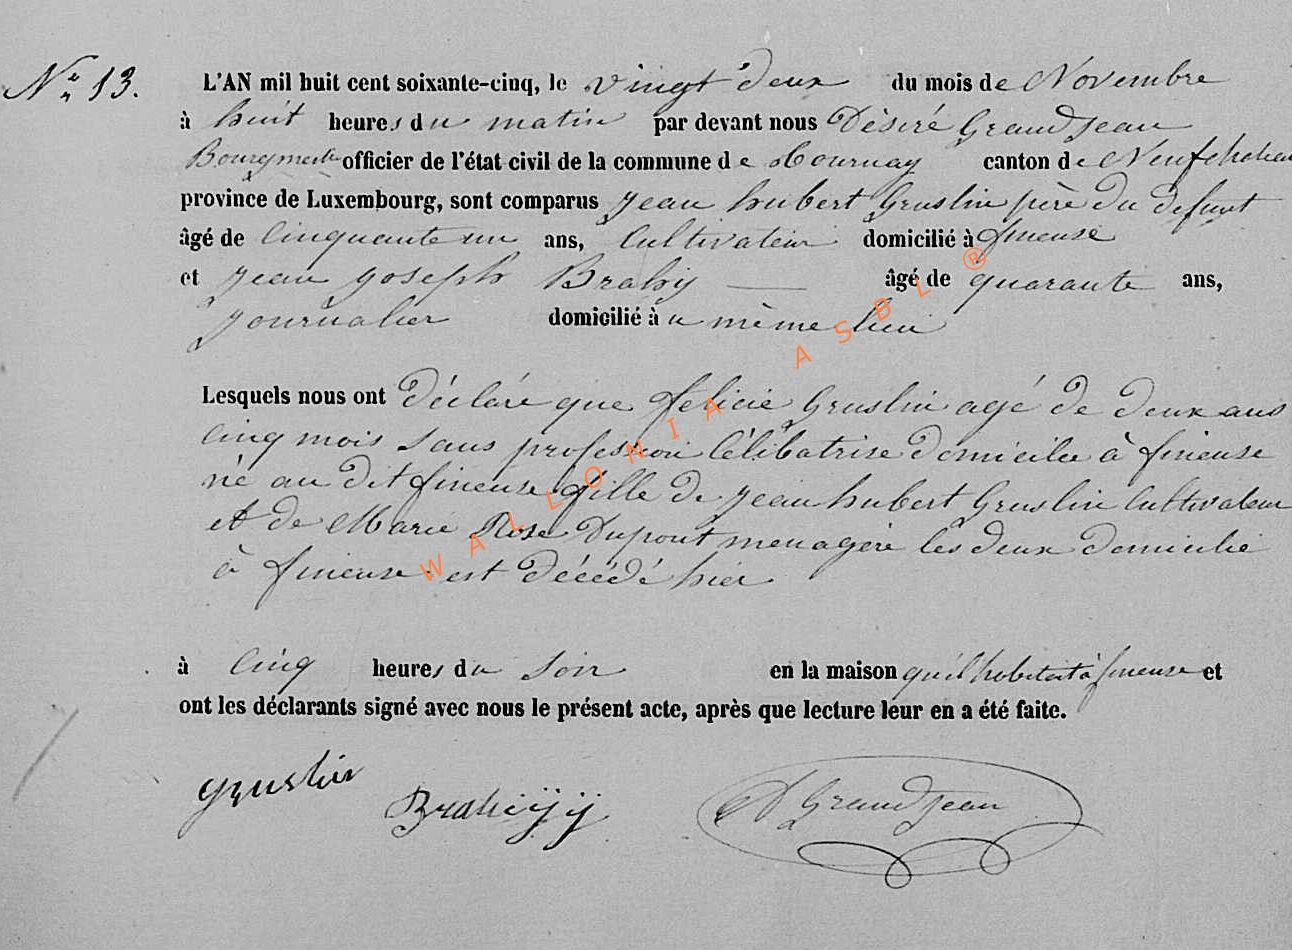 Nr 13.
L'AN mil huit cent soixante-cinq, le vingt deux du mois de Novembre
à huit heures du matin par devant nous Désiré GrandJean
Bourgmestre officier de l'état civil de la commune de Tournay canton de Neufchateau
province de Luxembourg, sont comparus Jean hubert Gruslin père du defunt
âgé de Cinquante un ans, Cultivateur domicilié à fineuse
et Jean Joseph Brahy âgé de quarante ans,
Journalier domicilié à u même lieu
Lesquels nous ont déclaré que félicie Gruslin agé de deux ans
cinq mois sans profession Célibatrise domicilee à fineuse
né au dit fineuse fille de Jean hubert Gruslin Cultivateur
et de Marie Rose Dupont menagère les deux domicilié
à fineuse est décédé hier
à Cinq heures du soir en la maison qu'il habitait à fineuse et
ont les déclarants signé avec nous le présent acte, après que lecture leur en a été faite.
Gruslin
D GrandJean
WALLONIA ASBL ®